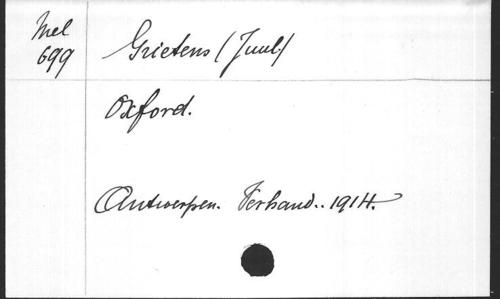 Mel
699
Grietens (Juul)
Oxford.
Antwerpen. Verband.. 1914.